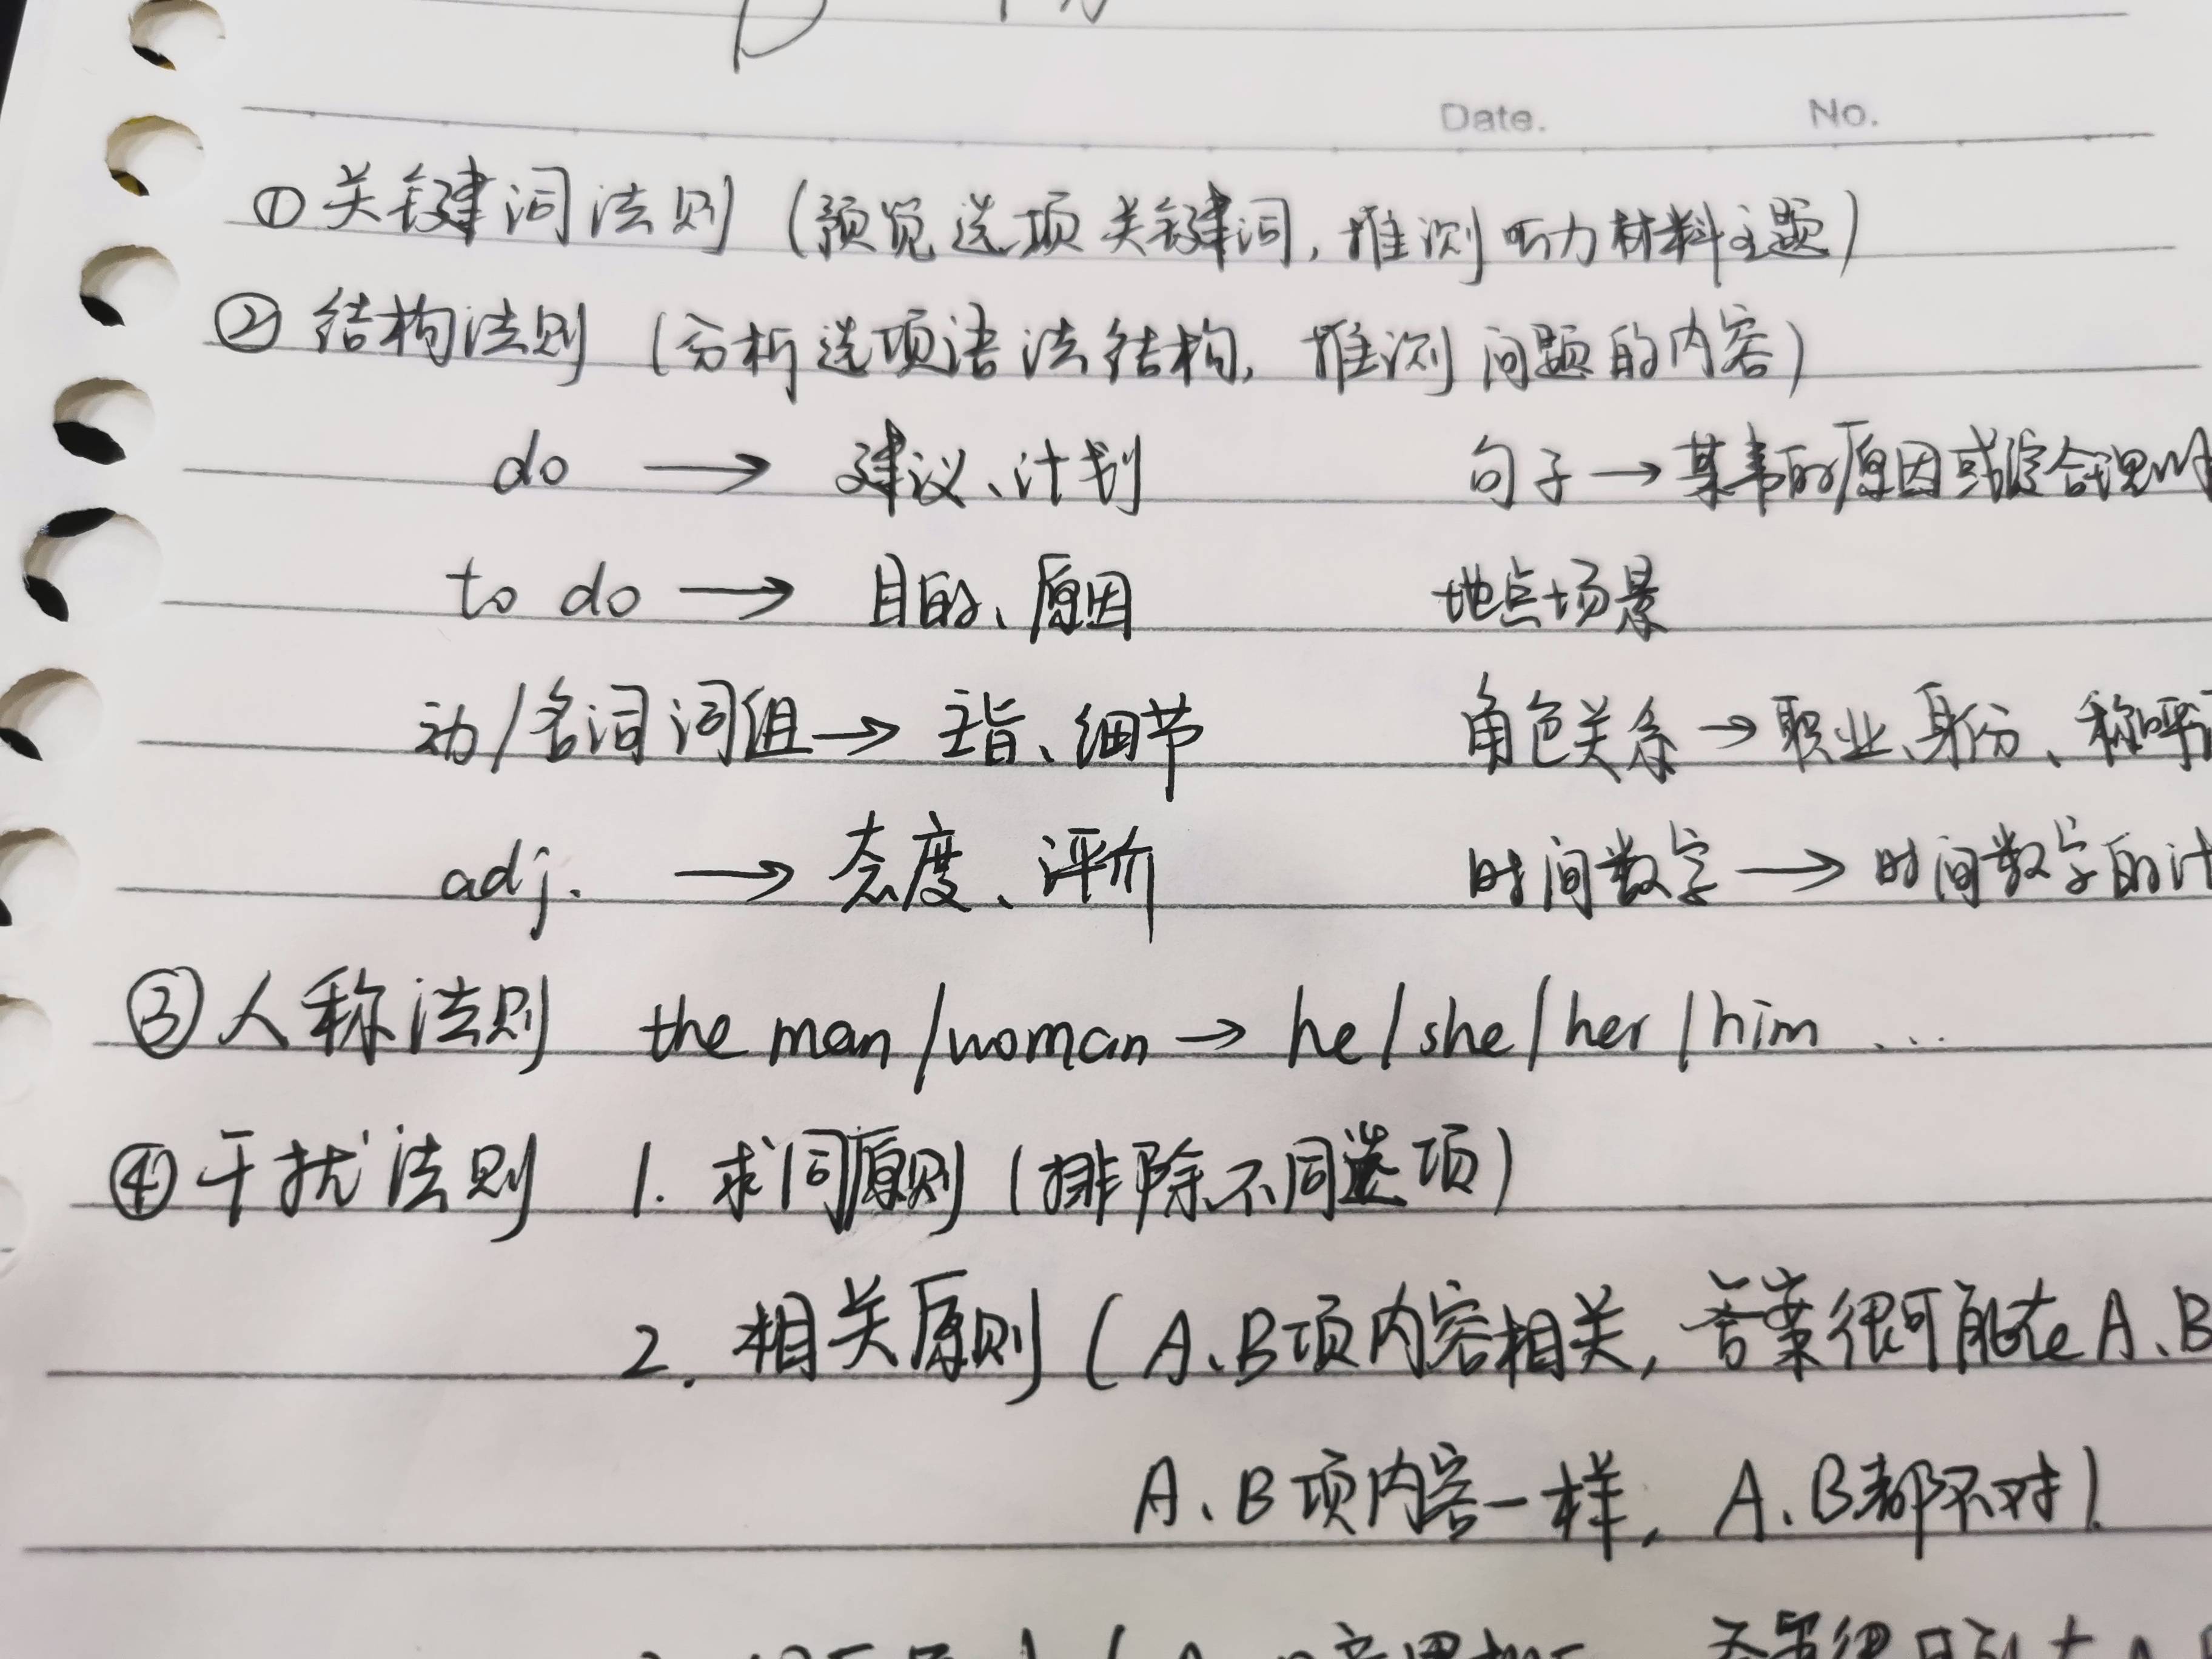 Date. No.
①关键词法则（预览选项关键词，推测听力材料主题）
②结构法则（分析选项语法结构，推测问题的内容）
do → 建议、计划 句子→某事的原因或综合理
to do → 目的、原因 地点场景
动/名词词组→主旨、细节 角色关系→职业、身份、称呼
adj. → 态度、评价 时间数字→时间数字的计
③人称法则 the man/woman→he/she/her/him ...
④干扰法则 1. 求同原则（排除不同选项）
2. 相关原则（A、B项内容相关，答案很可能在A、B
A、B项内容一样，A、B都不对）